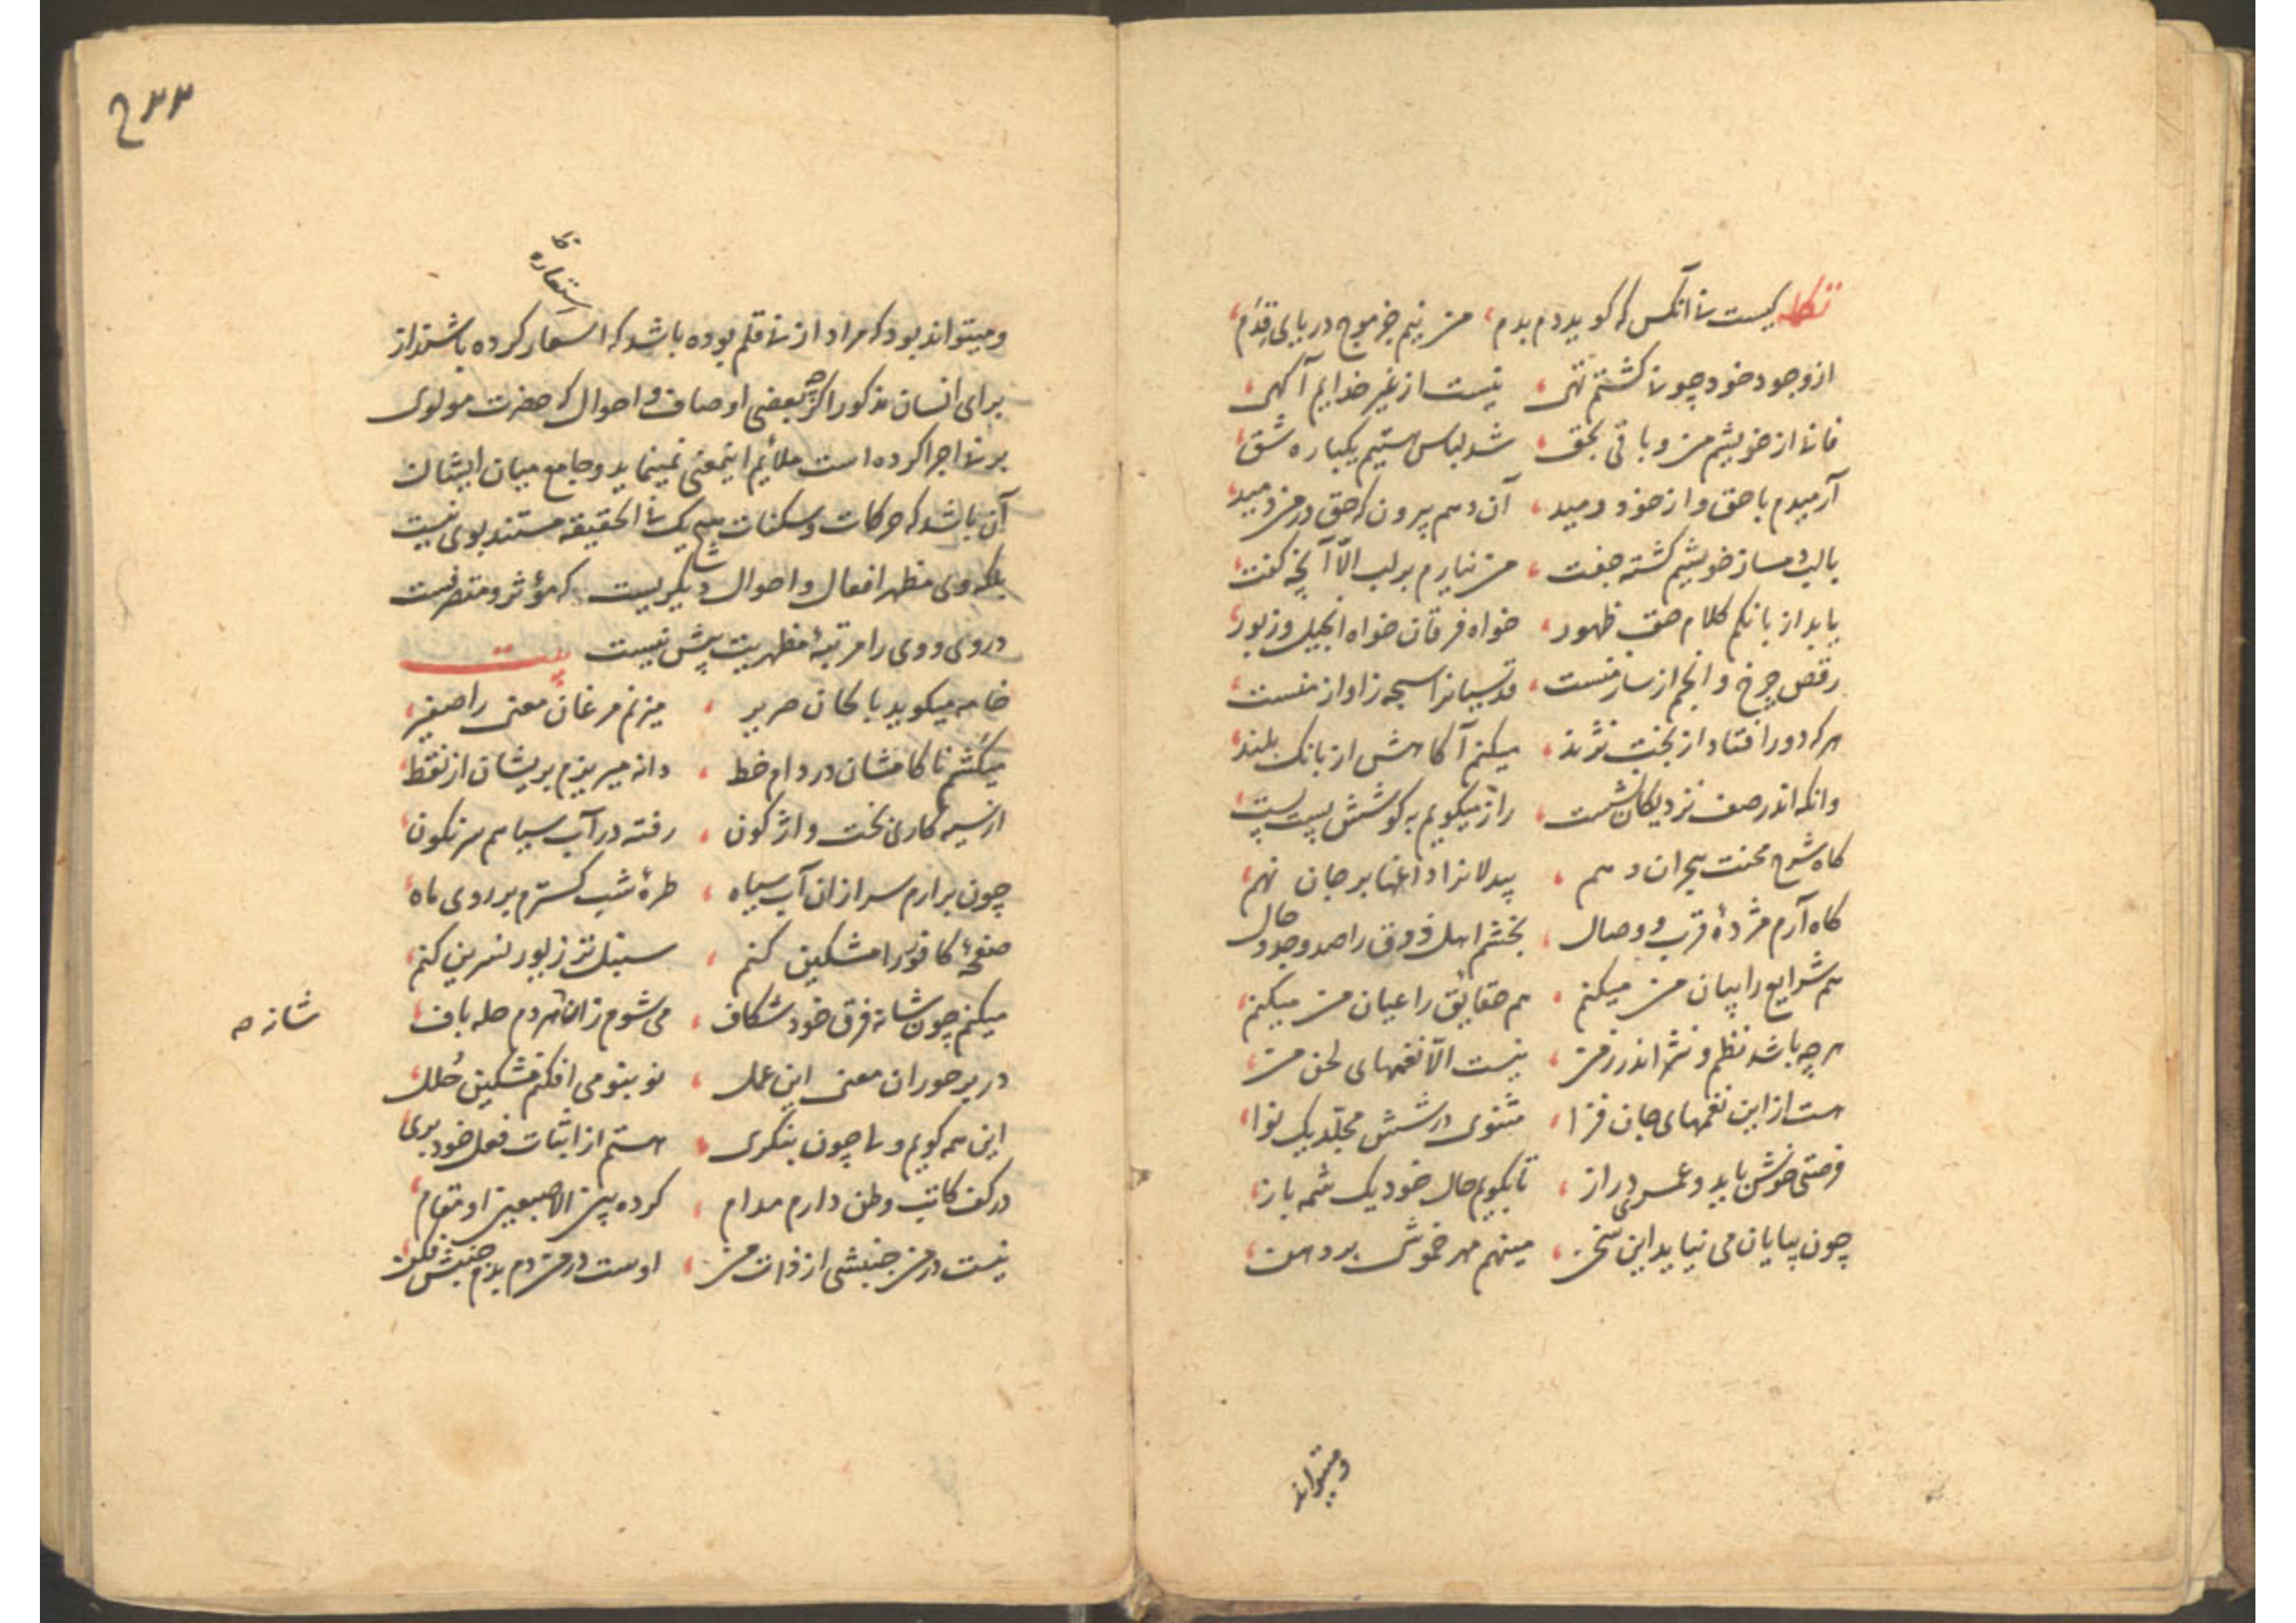 کیست نی آنکس که گوید دم بدم ، من نیم جز موج دریای قِدَم
از وجود خود چو نی گشتم تهی ، نیست از غیر خدایم آگهی
فانی از خویشم من و باقی بحق ، شد لباس هستیم یکباره شق
آرمیدم با حق و از خود رمید ، آن دهم بیرون که حق در من دمید
با لب دمساز خویشم گشته جفت ، من نیارم بر لب الّا آنچه گفت
یابد از بانکم کلام حق ظهور ، خواه فرقان خواه انجیل و زبور
رقص چرخ و انجم از ساز منست ، قدسیانرا سبحه ز آواز منست
هر که دور افتاد از بخت نژند ، میکنم آگاهش از بانک بلند
وانکه اندر صف نزدیکان نشست ، راز میگویم به گوشش پست پست
گاه شرح محنت هجران دهم ، بیدلانرا داغها بر جان نهم
گاه آرم مژدهٔ قرب و وصال ، بخشم اهل ذوق را صد وجد و حال
هم شرایع را بیان من میکنم ، هم حقایق را عیان من میکنم
هر چه باشد نظم و نثر اندر زمن ، نیست الّا نغمهای لحن من
هست از این نغمهای جان فزا ، مثنوی در شش مجلّد یک نوا
فرصتی خوش باید و عمری دراز ، تا بگویم حال خود یک شمه باز
چون بپایان می نیاید این سخن ، مینهم مهر خموشی بر دهن
ومیتواند
۲۳۳
استعاره
ومیتواند بود که مراد از نی قلم بوده باشد که استعار کرده باشند از
برای انسان مذکور اگرچه بعضی اوصاف و احوال که حضرت مولوی
بر نی اجرا کرده است ملائم اینمعنی نمینماید و جامع میان ایشان
آن باشد که حرکات و سکنات هیچ یک فی الحقیقه مستند بوی نیست
بلکه وی مظهر افعال و احوال دیگریست که مؤثر و متصرفست
در وی و وی را مرتبهٔ مظهریت بیش نیست بیت
خامه میگوید با لحان صریر ، میزنم مرغان معنی را صفیر
میکَشم ناکامشان در دام خط ، دانه میریزم بریشان از نقط
از سیه کاری بخت واژگون ، رفته در آب سیاهم سرنگون
چون برارم سر ازان آب سیاه ، طرهٔ شب گسترم بر روی ماه
صفحهٔ کافور را مشکین کنم ، سنبل تر زیور نسرین کنم
میکنم چون شانه فرق خود شکاف ، می شوم زان هر دم حله باف
شانه صه
در بر حوران معنی این عمل ، نو بنو می افکنم مشکین حُلل
این همه گویم ولی چون بنگری ، هستم از اثبات فعل خود بری
در کف کاتب وطن دارم مدام ، کرده بین الاصبعین او مقام
نیست در من جنبشی از ذات من ، اوست در من دم بدم جنبش فکن